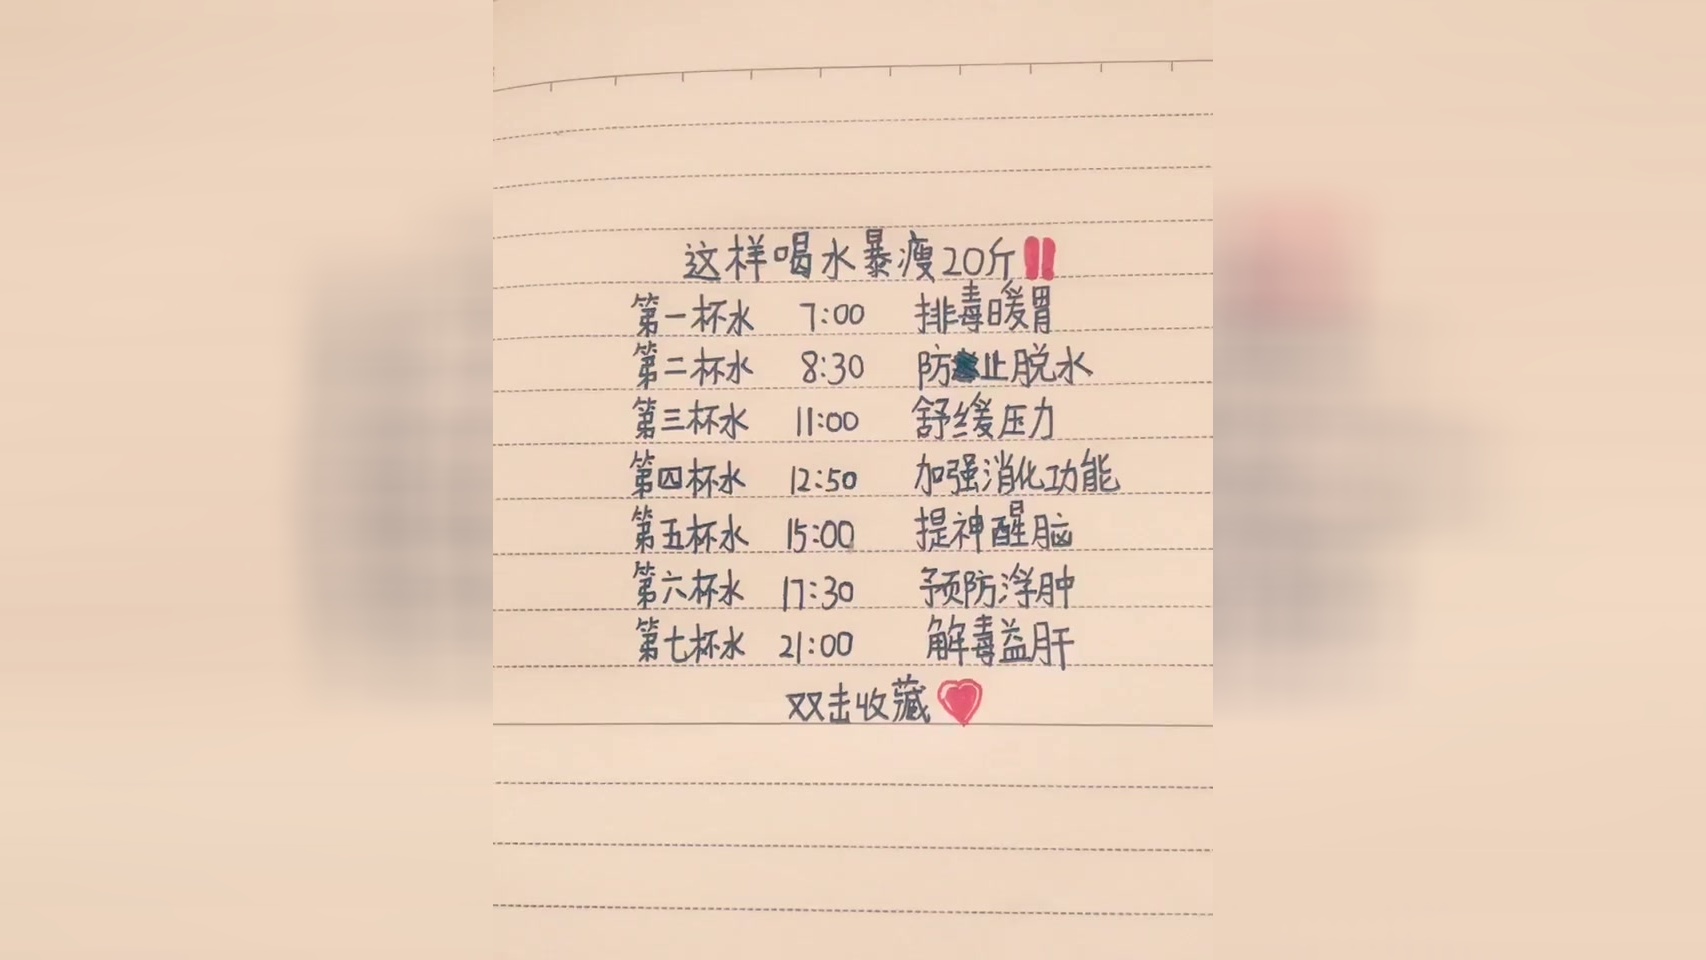 这样喝水暴瘦20斤‼
第一杯水 7:00 排毒暖胃
第二杯水 8:30 防止脱水
第三杯水 11:00 舒缓压力
第四杯水 12:50 加强消化功能
第五杯水 15:00 提神醒脑
第六杯水 17:30 预防浮肿
第七杯水 21:00 解毒益肝
双击收藏